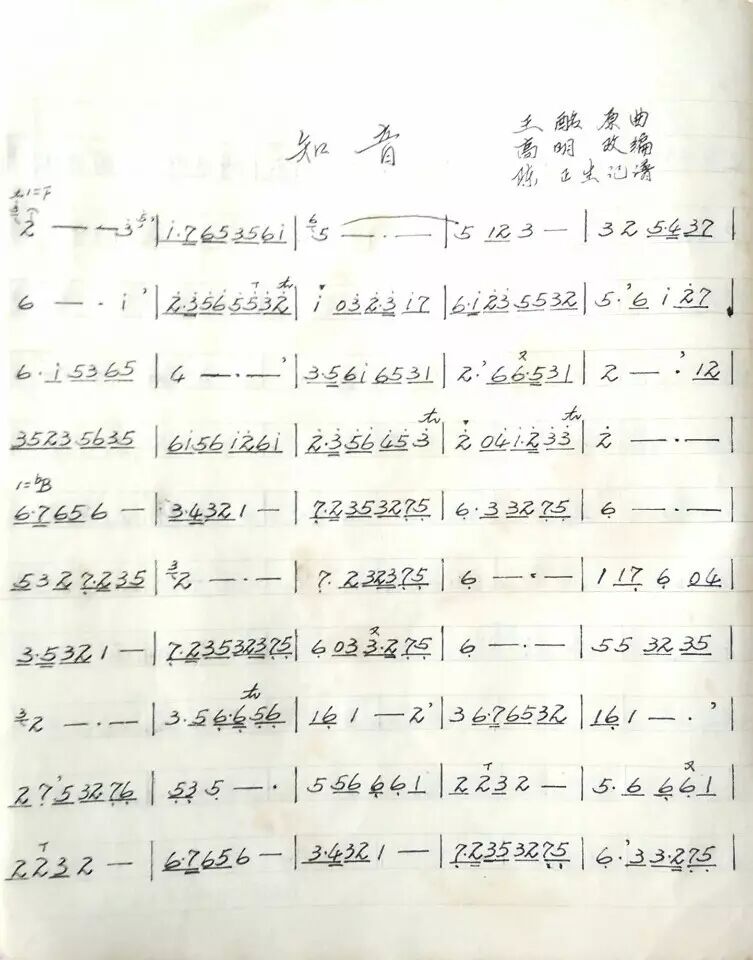 知音
王酩原曲
高明改编
陈正生记谱
1=F
2 — — 3 5 | i·7653561 | 5 — · — | 5 12 3 — | 3 2 5·4 37 |
6 — · i ’ | 2·35655532 tr | i 032·3 i7 | 6·123·5532 | 5·’6 i 27
6·i 5365 | 4 — · — ’ | 3·5616531 | 2·’66·531 | 2 — ·’ 12 |
35235635 | 6i56i26i | 2·356453 tr | 2 041·233 tr | 2 — · — |
1=bB
6·7656 — | 3·4321 — | 7·2353275 | 6·33275 | 6 — · — |
5327·235 | 3 2 — · — | 7·232375 | 6 — · — | 1 17 6 04 |
3·5321 — | 7·23532375 | 6 033·275 | 6 — · — | 55 32 35 |
3 2 — · — | 3·566·656 tr | 161 — 2’ | 36·76532 | 161 — · ’ |
27’53276 | 535 — · | 556 661 | 2232 — | 5·6 661 |
2232 — | 6·7656 — | 3·4321 — | 7·2353275 | 6·’33·275 |